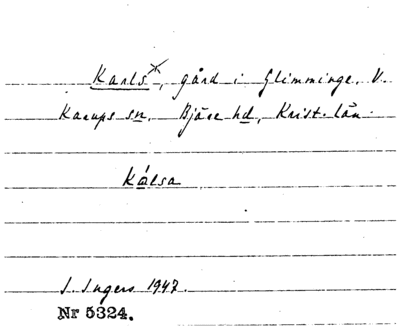 Karls×, gård i Glimminge, V.
Karups sn, Bjäre hd, Krist. län.
Kálsa
I. Ingers 1947.
Nr 5324.